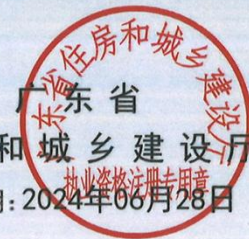 广东省住房和城乡建设厅
广东省
和城乡建设厅
执业资格注册专用章
期:2024年06月28日